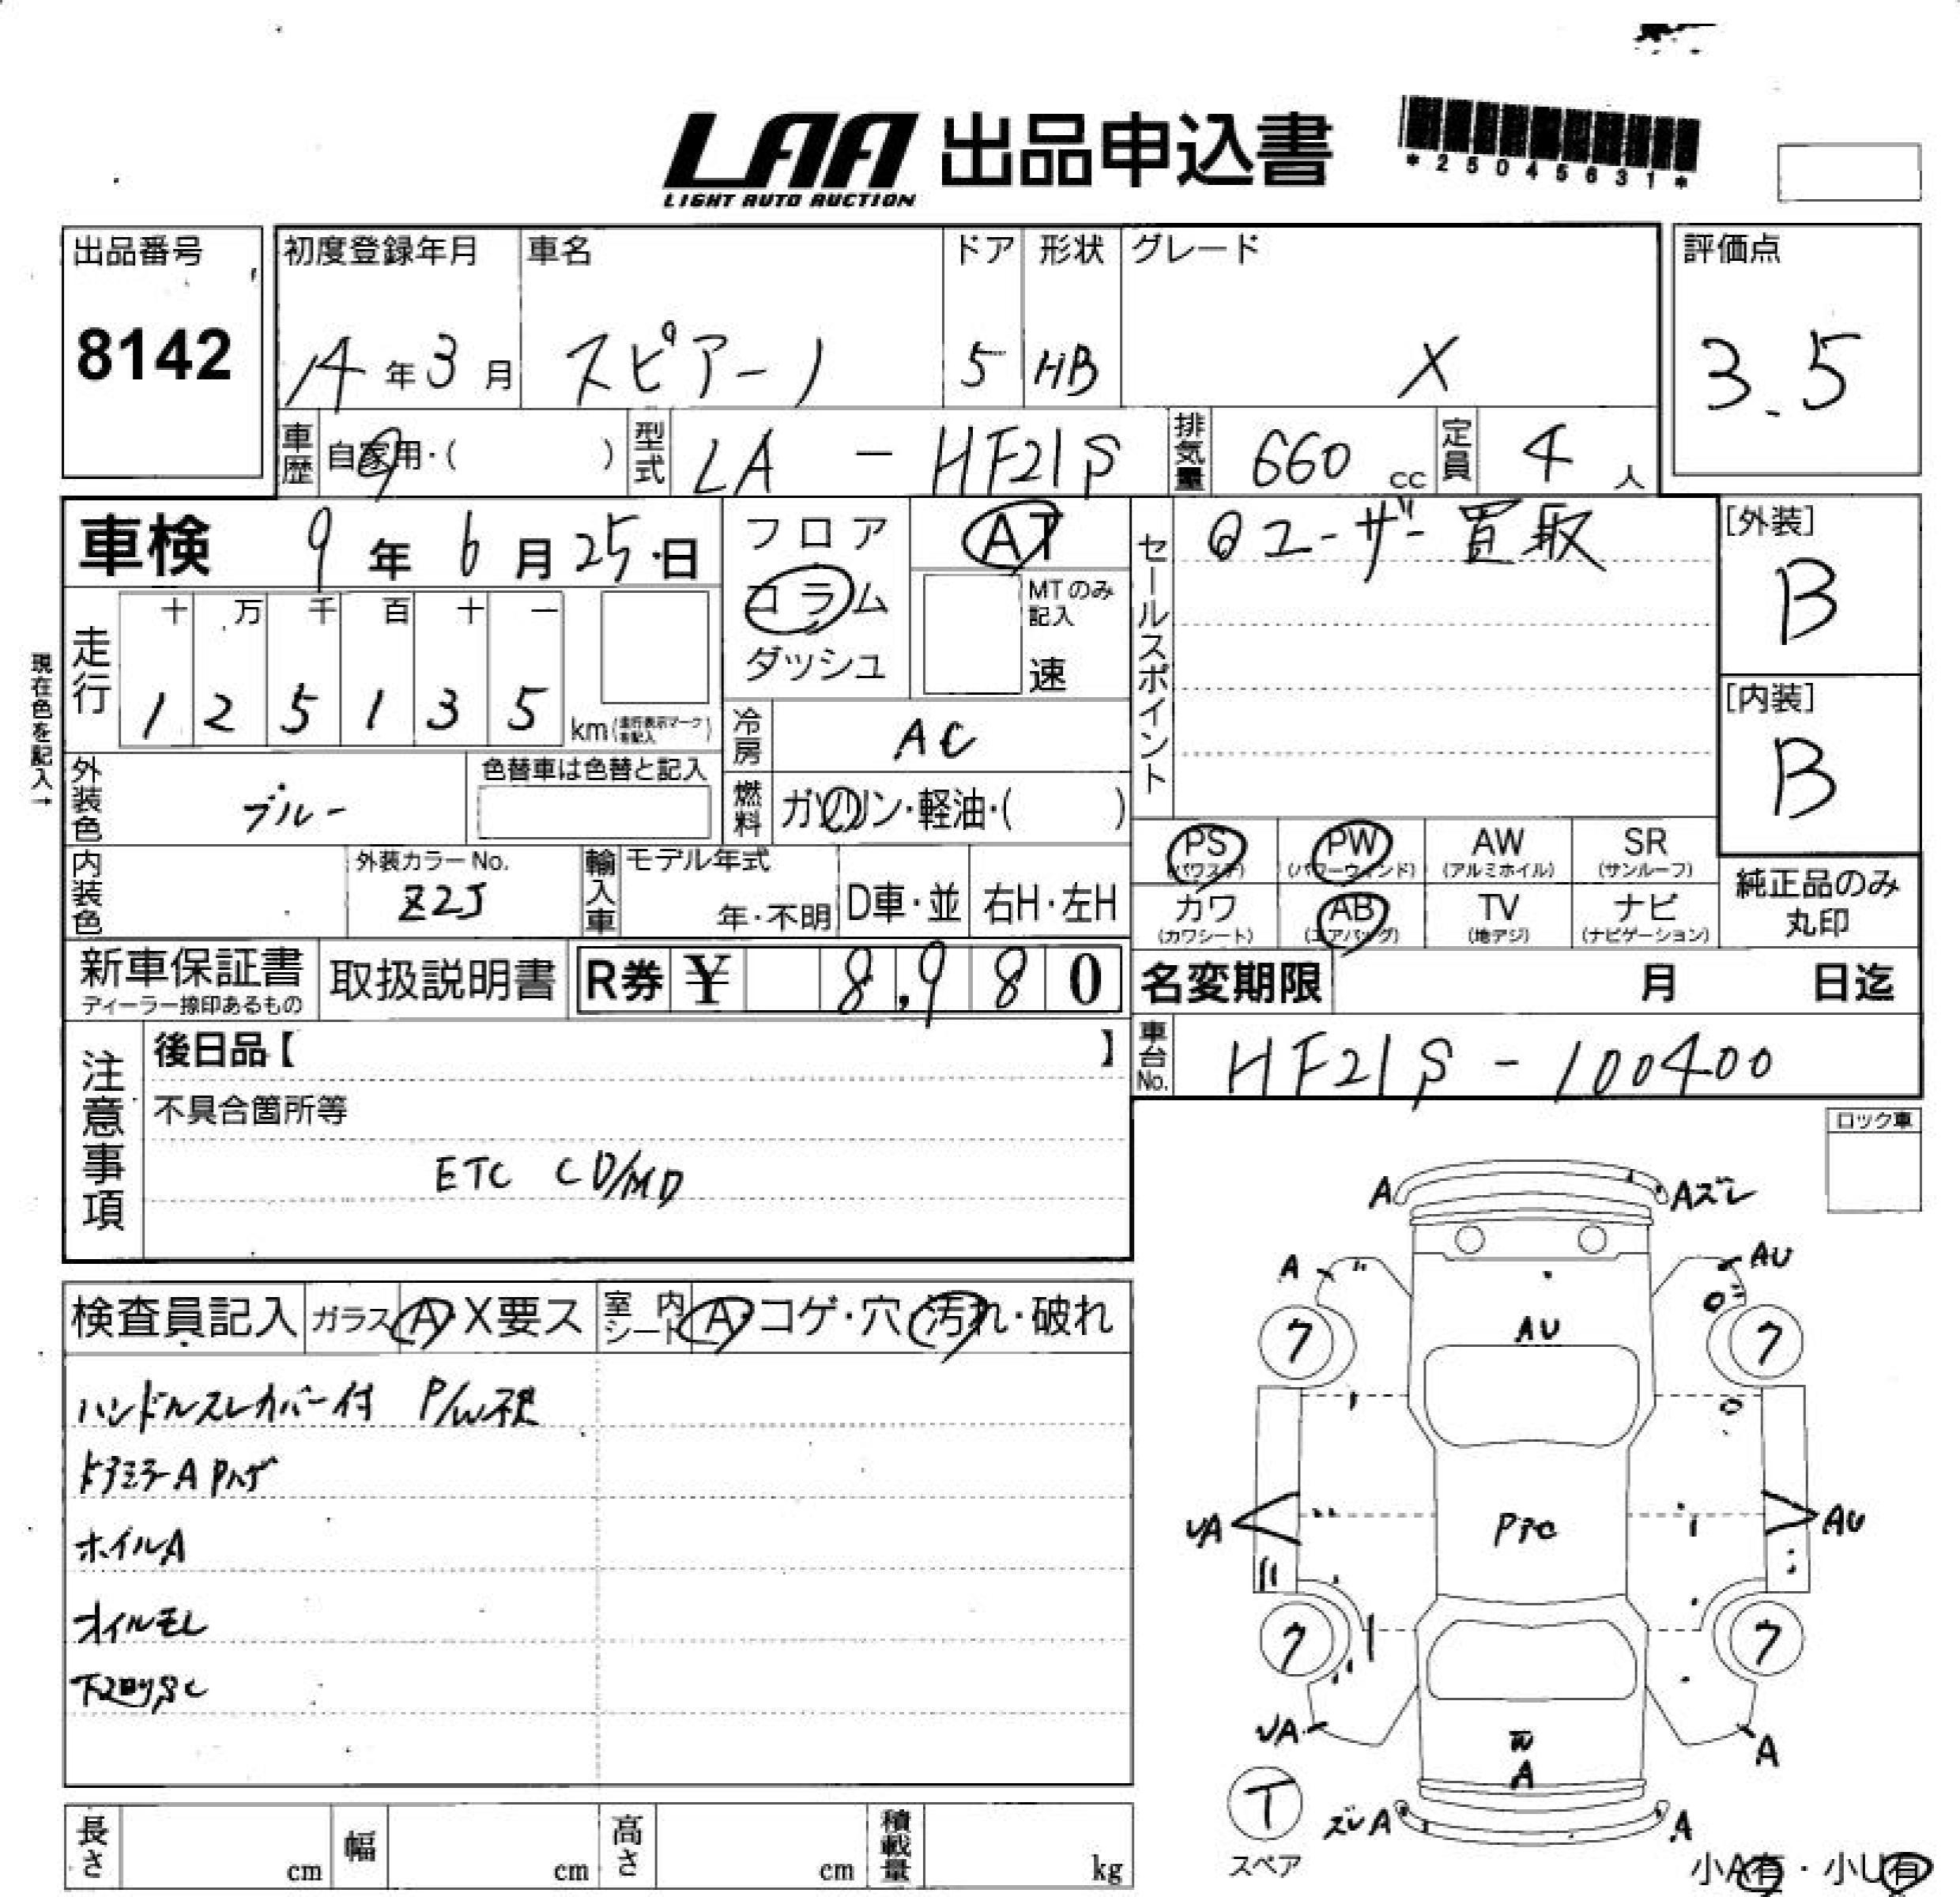 LAA 出品申込書
LIGHT AUTO AUCTION
*25045631*
出品番号
8142
初度登録年月
14年3月
車名
スピアーノ
ドア
5
形状
HB
グレード
X
評価点
3.5
車歴 自家用・( )
型式 LA - HF21S
排気量 660 cc
定員 4 人
車検 9年6月25日
現在色を記入→
走行
十 万 千 百 十 一
1 2 5 1 3 5 km
(走行表示マーク有記入)
フロア
コラム
ダッシュ
AT
MTのみ記入
速
冷房 AC
燃料 ガソリン・軽油・( )
セールスポイント
ユーザー買取
[外装]
B
[内装]
B
外装色 ブルー
色替車は色替と記入
内装色
外装カラーNo.
Z2J
輸入車
モデル年式
年・不明
D車・並
右H・左H
PS (パワステ)
PW (パワーウィンド)
AW (アルミホイル)
SR (サンルーフ)
カワ (カワシート)
AB (エアバッグ)
TV (地デジ)
ナビ (ナビゲーション)
純正品のみ
丸印
新車保証書
ディーラー捺印あるもの
取扱説明書
R券 ¥ 8,980
名変期限 月 日迄
車台No. HF21S - 100400
注意事項
後日品【 】
不具合箇所等
ETC CD/MD
ロック車
検査員記入
ガラス A・X要ス
室内シート A・コゲ・穴・汚れ・破れ
ハンドルスレカバー付 P/W不良
ドアミラーA Pハゲ
ホイルA
オイルモレ
下廻りSC
A
Aズレ
A
AU
7
AU
7
UA
AU
7
7
UA
A
W
A
T
スペア
ズレA
A
小A有・小U有
長さ cm
幅 cm
高さ cm
積載量 kg